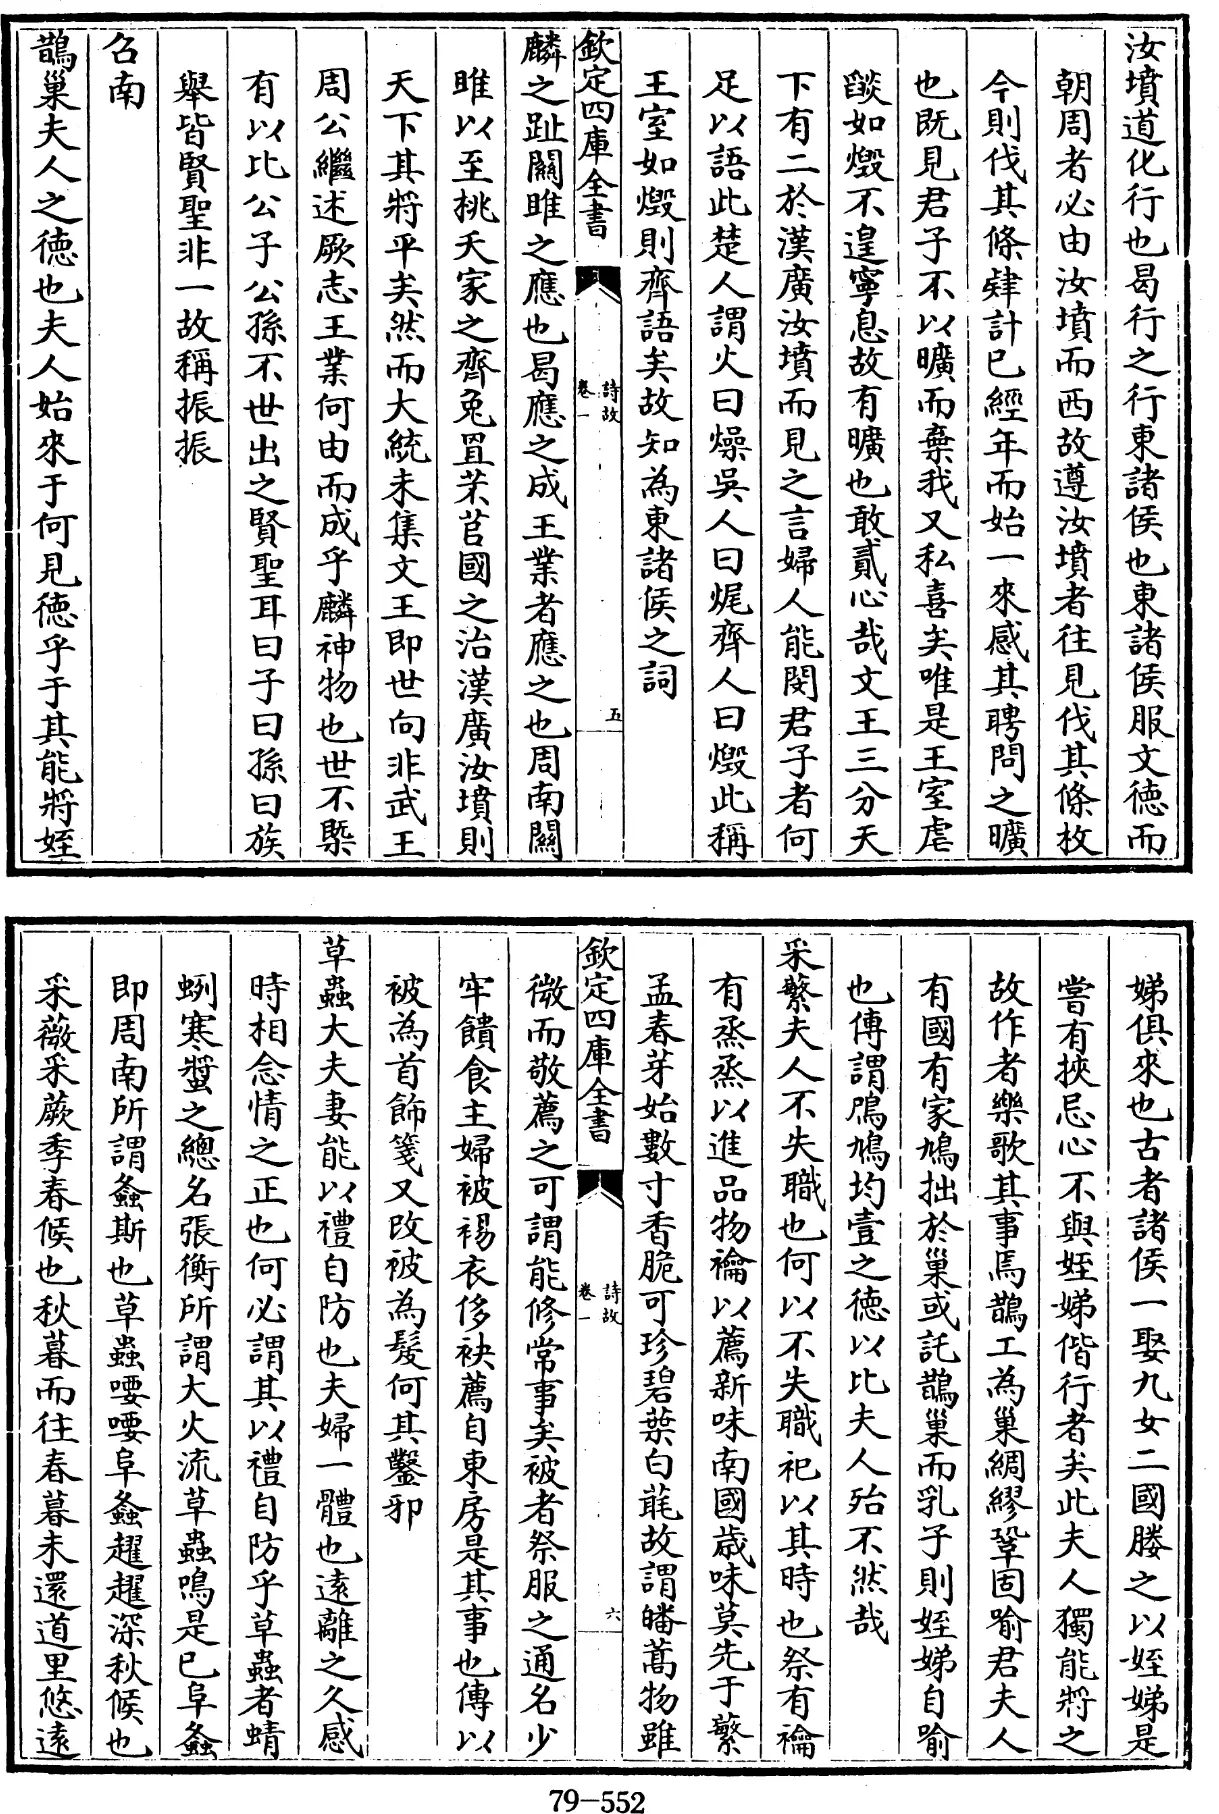 汝墳道化行也曷行之行東諸侯也東諸侯服文徳而
朝周者必由汝墳而西故遵汝墳者往見伐其條枚
今則伐其條肄計已經年而始一來感其聘問之曠
也既見君子不以曠而棄我又私喜矣唯是王室虐
燄如燬不遑寧息故有曠也敢貳心哉文王三分天
下有二於漢廣汝墳而見之言婦人能閔君子者何
足以語此楚人謂火曰燥吳人曰焜齊人曰燬此稱
王室如燬則齊語矣故知為東諸侯之詞
欽定四庫全書
詩故
卷一
五
麟之趾關雎之應也曷應之成王業者應之也周南關
雎以至桃夭家之齊兔罝芣苢國之治漢廣汝墳則
天下其將平矣然而大統未集文王即世向非武王
周公繼述厥志王業何由而成乎麟神物也世不槩
有以比公子公孫不世出之賢聖耳曰子曰孫曰族
舉皆賢聖非一故稱振振
召南
鵲巢夫人之徳也夫人始來于何見徳乎于其能將姪
娣俱來也古者諸侯一娶九女二國媵之以姪娣是
嘗有挾忌心不與姪娣偕行者矣此夫人獨能將之
故作者樂歌其事焉鵲工為巢綢繆鞏固喻君夫人
有國有家鳩拙於巢或託鵲巢而乳子則姪娣自喻
也傳謂鳲鳩均壹之徳以比夫人殆不然哉
采蘩夫人不失職也何以不失職祀以其時也祭有禴
有烝烝以進品物禴以薦新味南國歳味莫先于蘩
孟春芽始數寸香脆可珍碧葉白毦故謂皤蒿物雖
欽定四庫全書
詩故
卷一
六
微而敬薦之可謂能修常事矣被者祭服之通名少
牢饋食主婦被裼衣侈袂薦自東房是其事也傳以
被為首飾箋又改被為髲何其鑿邪
草蟲大夫妻能以禮自防也夫婦一體也逺離之久感
時相念情之正也何必謂其以禮自防乎草蟲者蜻
蛚寒螿之總名張衡所謂大火流草蟲鳴是已阜螽
即周南所謂螽斯也草蟲喓喓阜螽趯趯深秋候也
采薇采蕨季春候也秋暮而往春暮未還道里悠逺
79-552